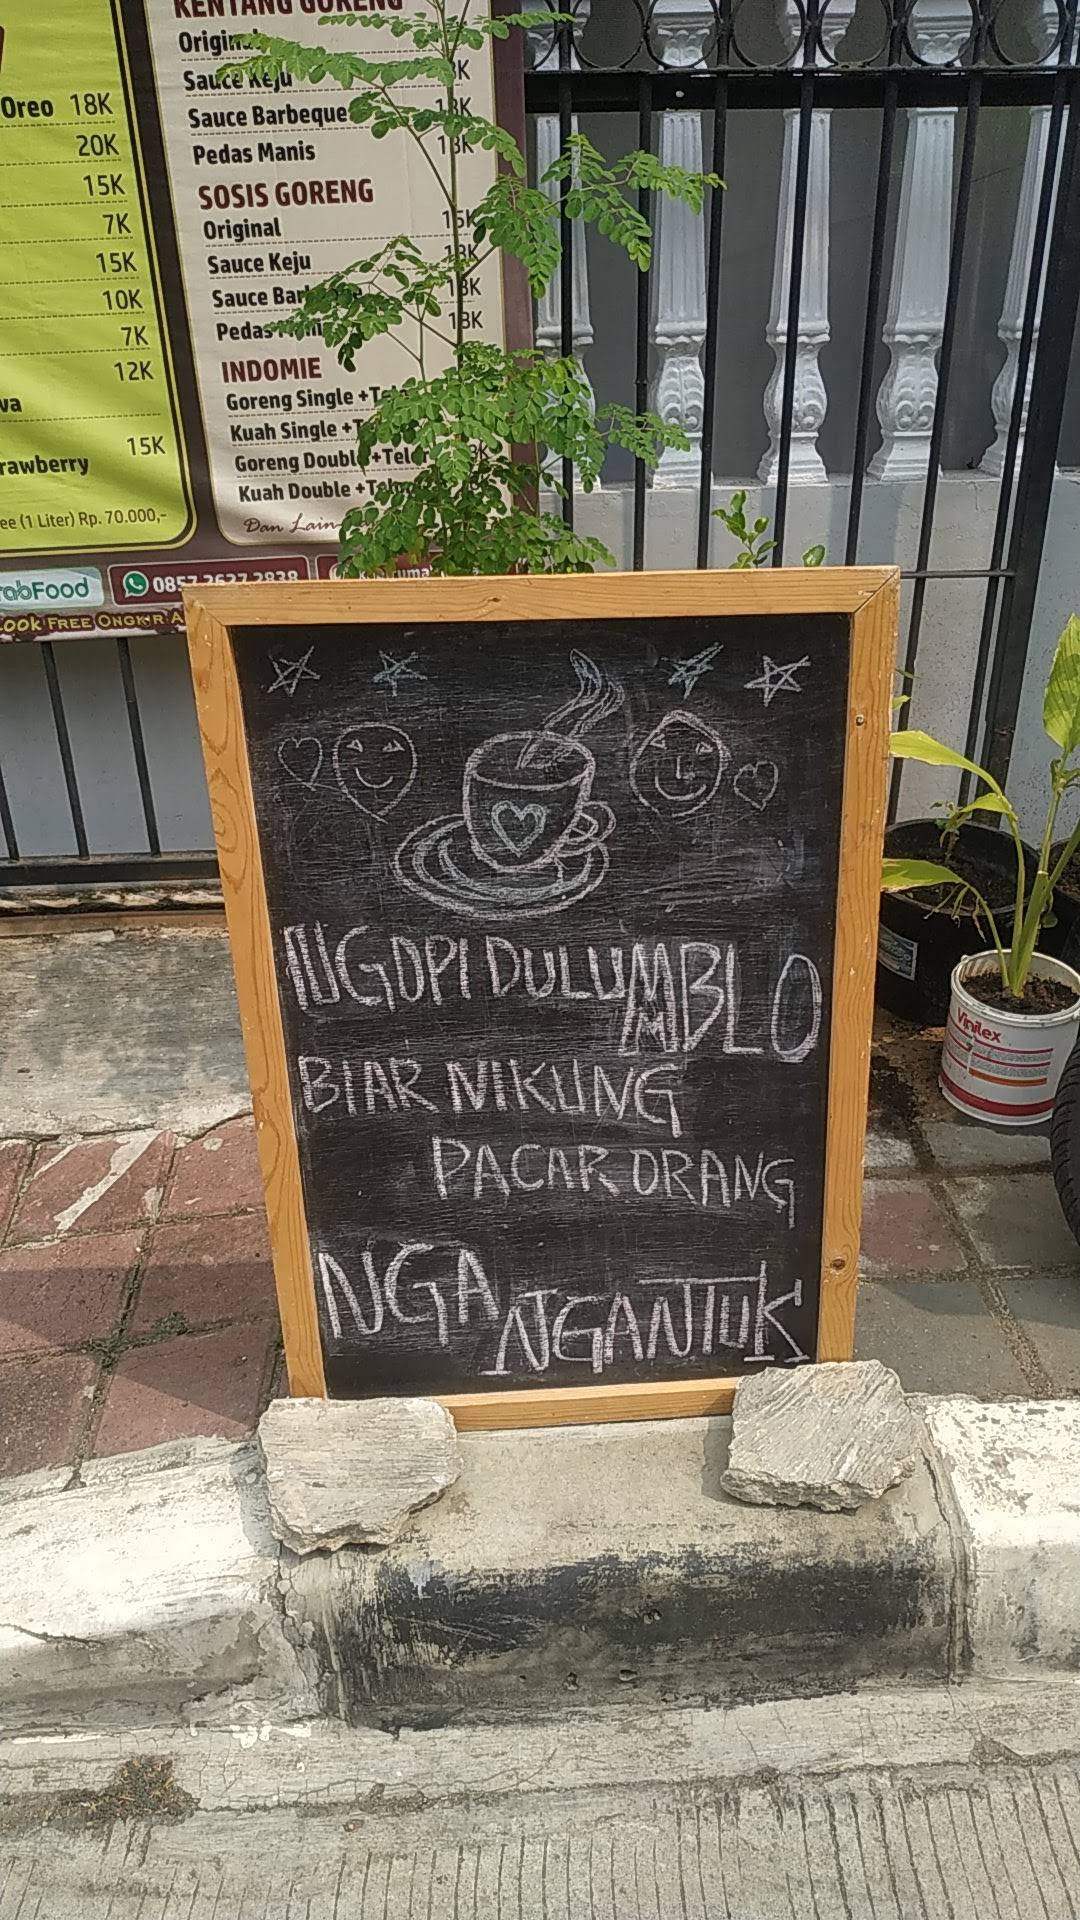 Oreo 18K
20K
15K
7K
15K
10K
7K
12K
15K
ee (1 Liter) Rp. 70.000,-
KENTANG GORENG
Original
Sauce Keju
Sauce Barbeque 18K
Pedas Manis 18K
SOSIS GORENG
Original 15K
Sauce Keju 18K
Sauce 18K
Pedas 18K
INDOMIE
Goreng Single
Kuah Single
Goreng Double +Telor
Kuah Double
Dan Lain
Food
0857 2627 2838
FREE ONGKIR
NGOPI DULU MBLO
BIAR NIKUNG
PACAR ORANG
NGA NGANTUK
Vinilex